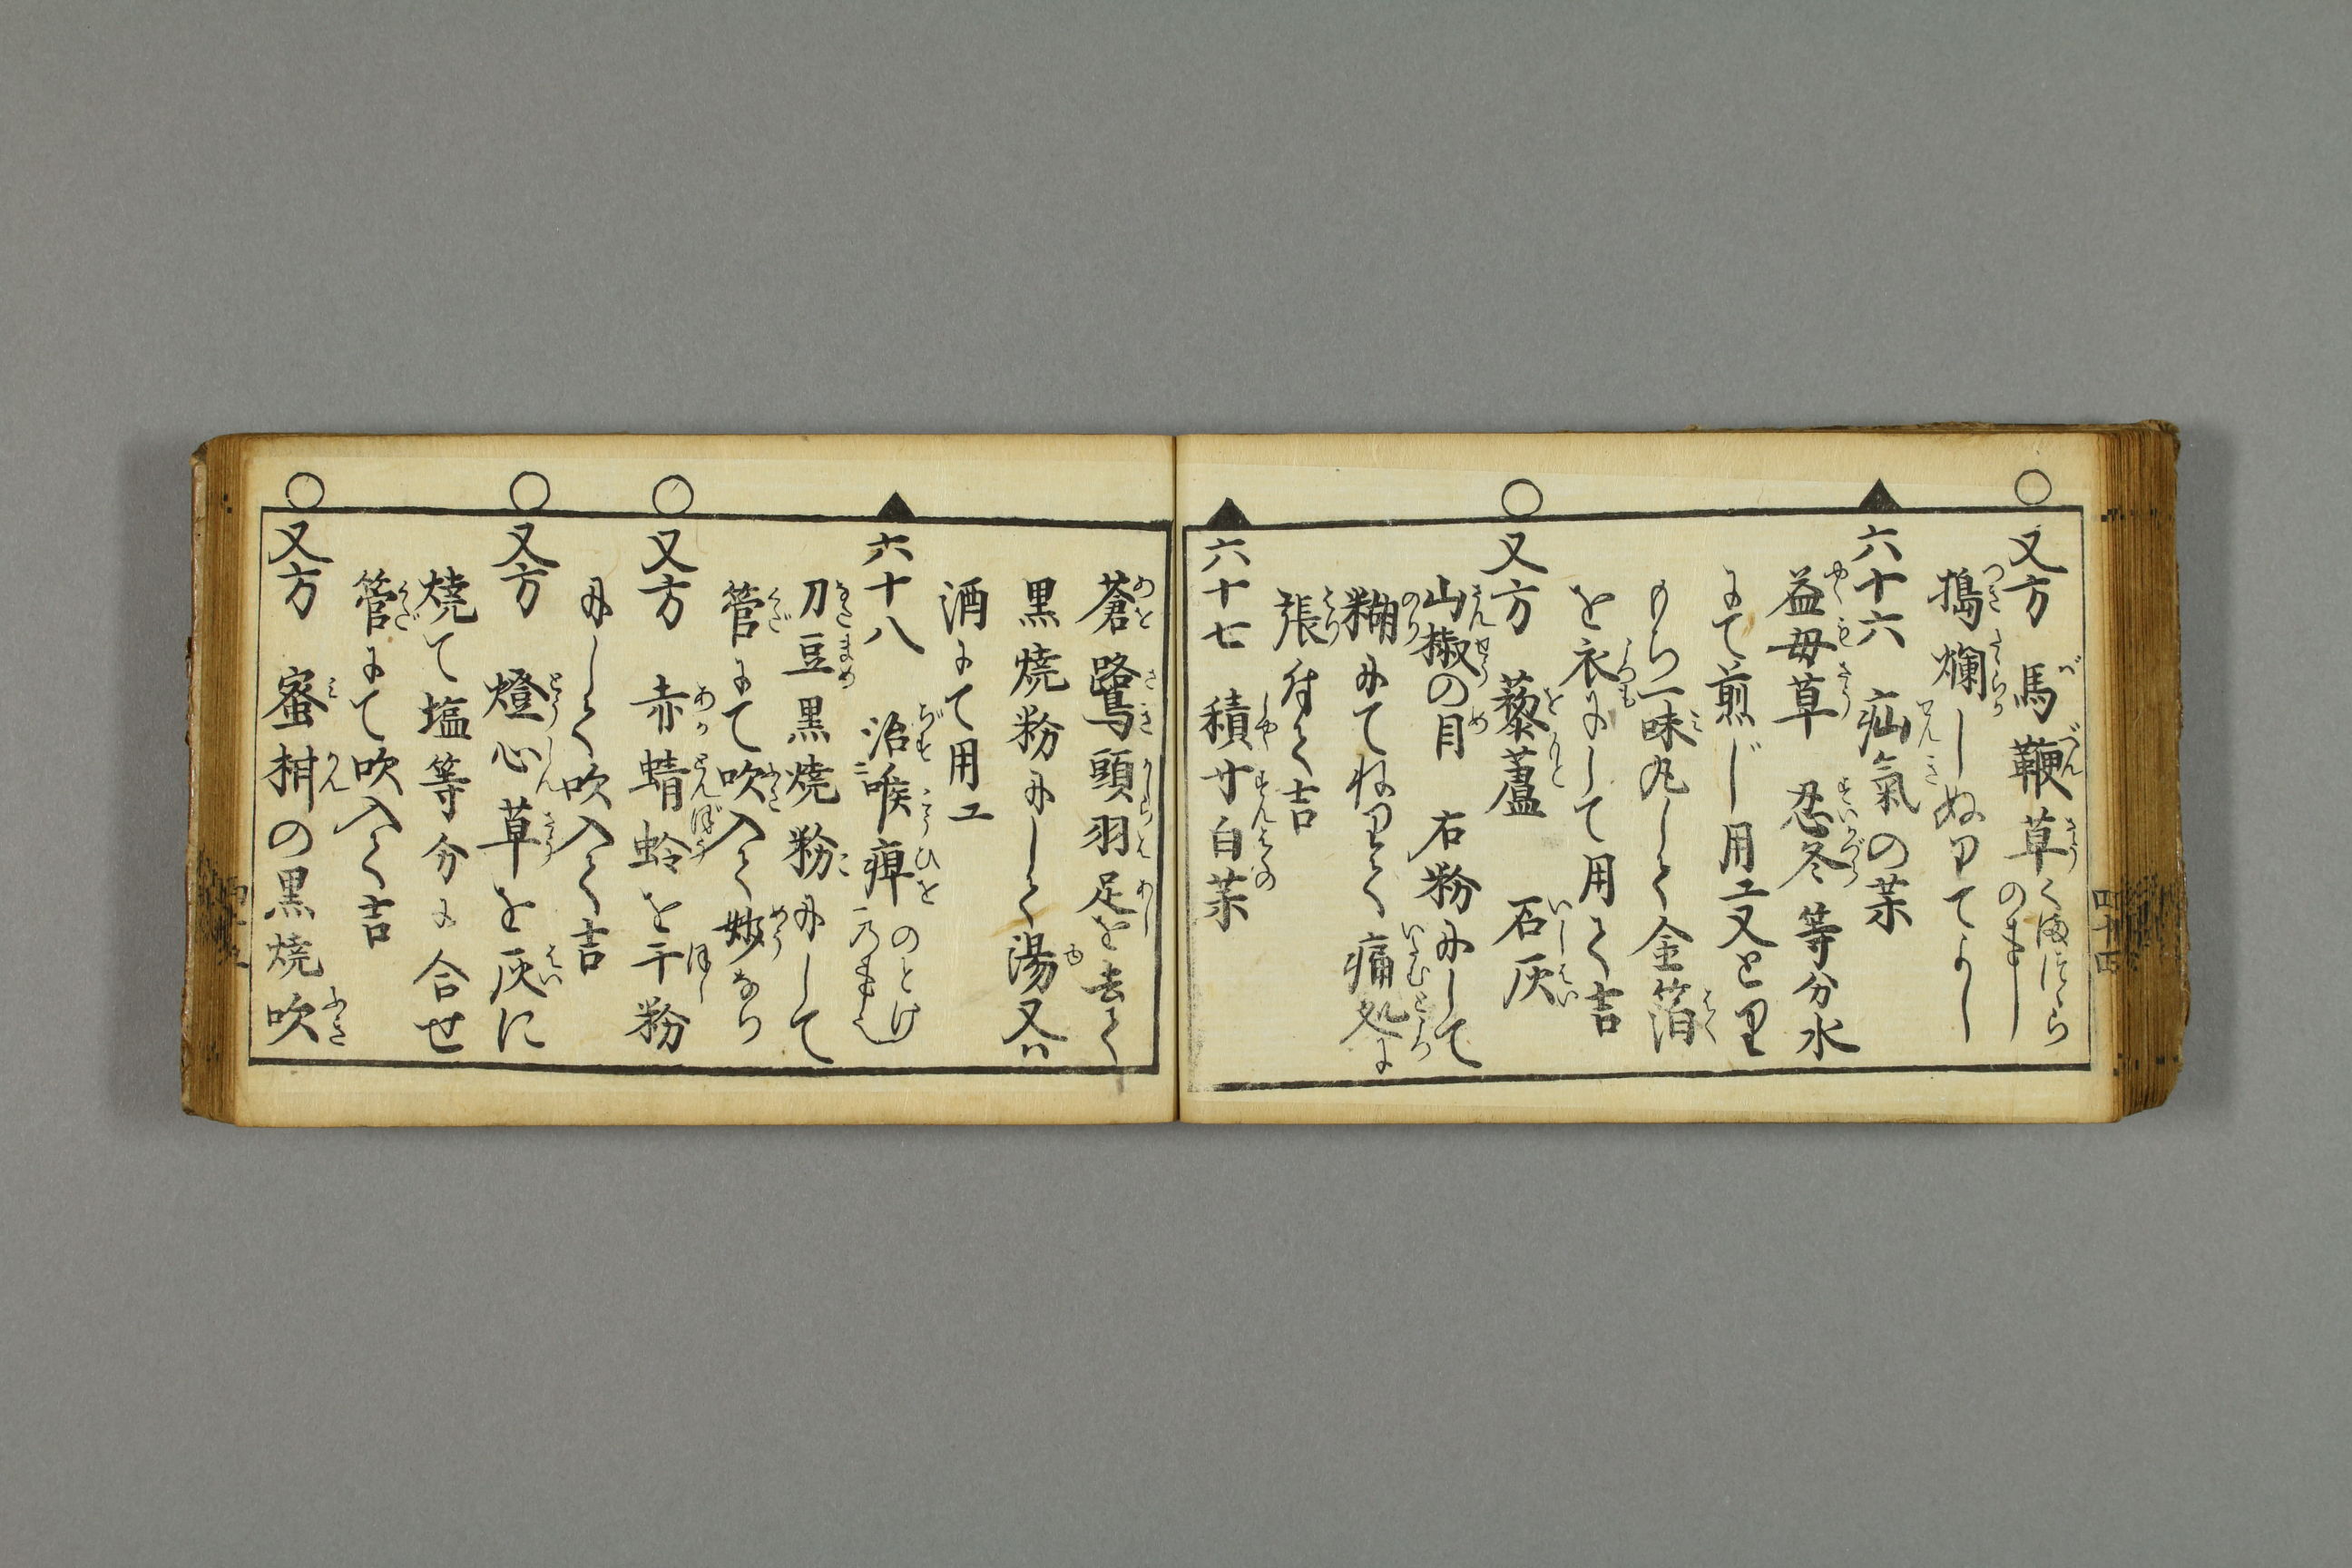 又方 馬鞭草くまつゞらのまし
搗爛しぬりてよし
六十六 疝氣の薬
益母草 忍冬 等分水
にて煎じ用ユ又とり
もち一味丸して金箔
を衣にして用て吉
又方 藜蘆 石灰
山椒の目 右粉にして
糊にてねりて痛処に
張付て吉
六十七 積サ白の薬
蒼鷺頭羽足を去て
黒焼粉にして湯又ハ
酒にて用ユ
六十八 治喉痺のとけ
刀豆黒焼粉にして
管にて吹入て妙なり
又方 赤蜻蛉を干粉
にして吹入て吉
又方 燈心草を灰に
焼て塩等分に合せ
管にて吹入て吉
又方 蜜柑の黒焼吹
四十四